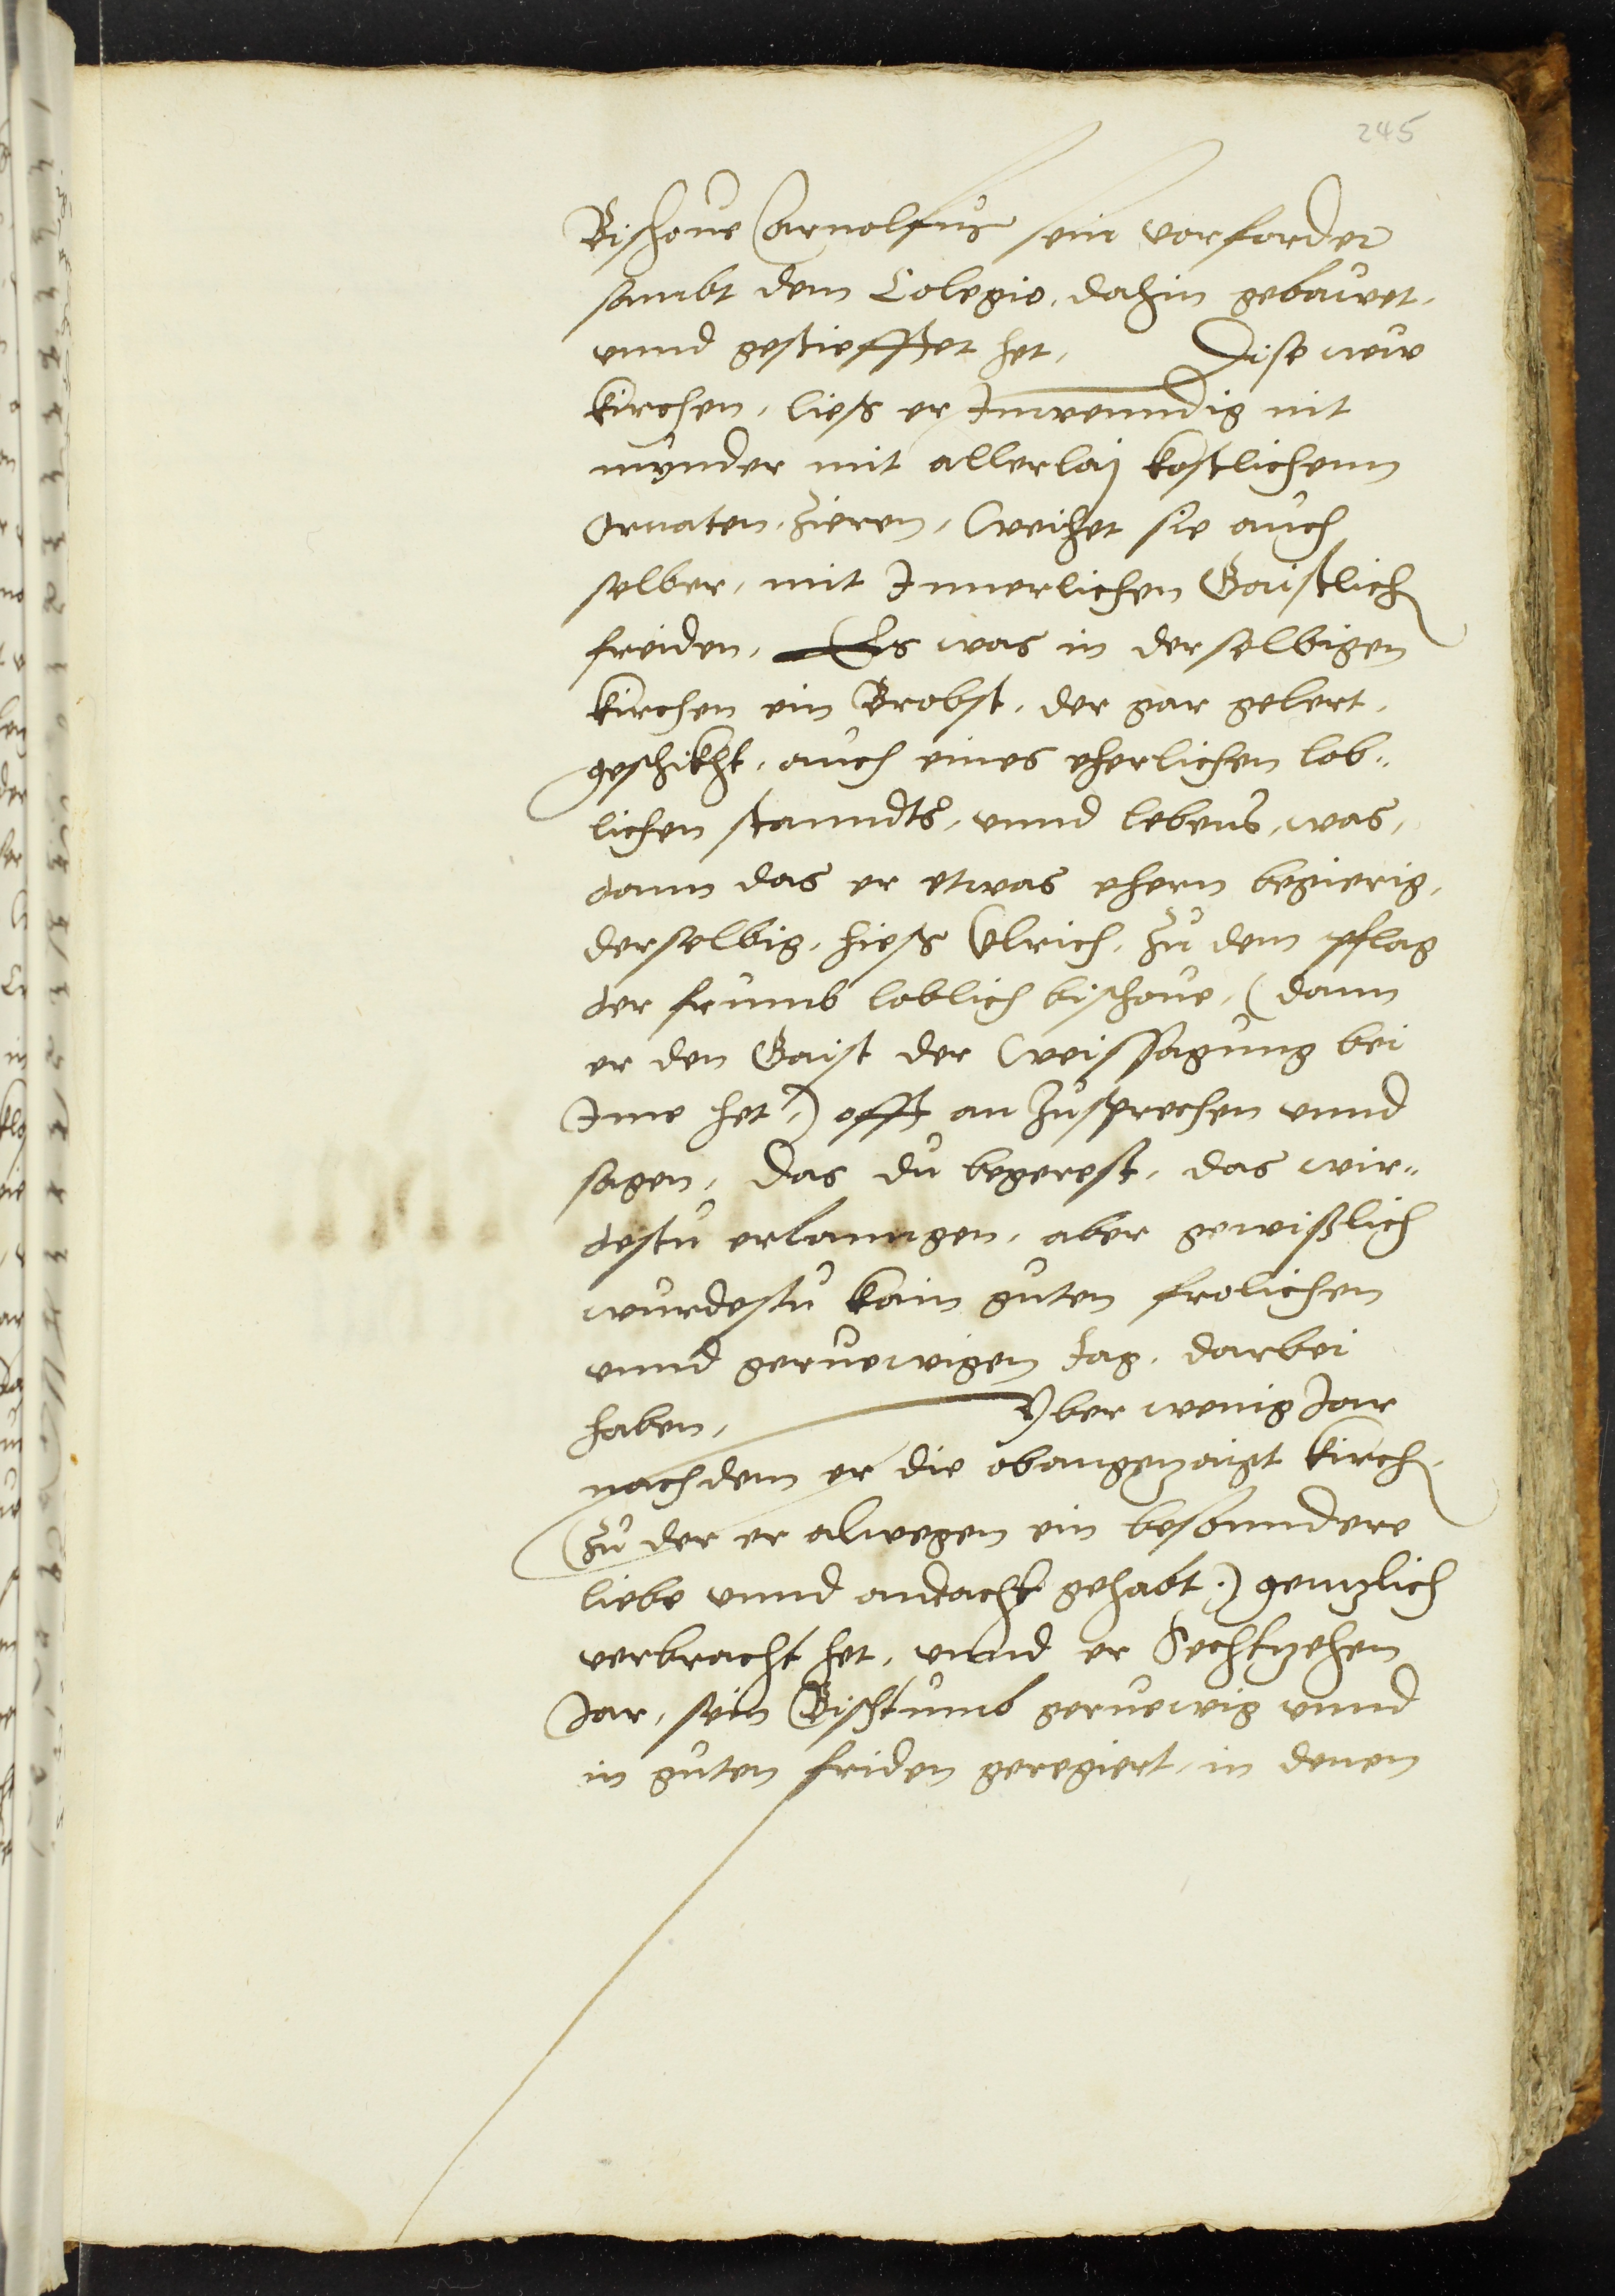 245
Bischoue Arnolfus sein vorforder
sambt dem Colegio, dahin gebauwet,
vnnd gestiefftet het, Dise new
kirchen, liess er Inwenndig nit
mynder mit allerlaij kostlichenn
Ornaten, zieren, Weihet sie auch
selber, mit Innerlichen Gaistlich
freiden, Es was in derselbigen
kirchen ein Brobst, der gar gelert,
geschikht, auch eines eherlichen lob„
lichen stanndts, vnnd lebens, was,
dann das er etwas ehern begierig,
derselbig, hiess Vlrich, zu dem pflag
der frumb loblich bischoue, (dann
er den Gaist der Weissagung bei
Ime het,) offt an zusprechen vnnd
sagen, Das du begerest, das wir„
destu erlanngen, aber gewißlich
wurdestu kain guten frolichen
vnnd geruewigen tag, darbei
haben, Yber wenig Jar
nachdem er die obangezaigt kirch,
(zu der er alwegen ein besonndere
liebe vnnd andacht gehabt.) gentzlich
verbracht het, vnnd er Sechtzehen
Jar, sein Bischtumb geruewig vnnd
in guten friden geregiert, in denen